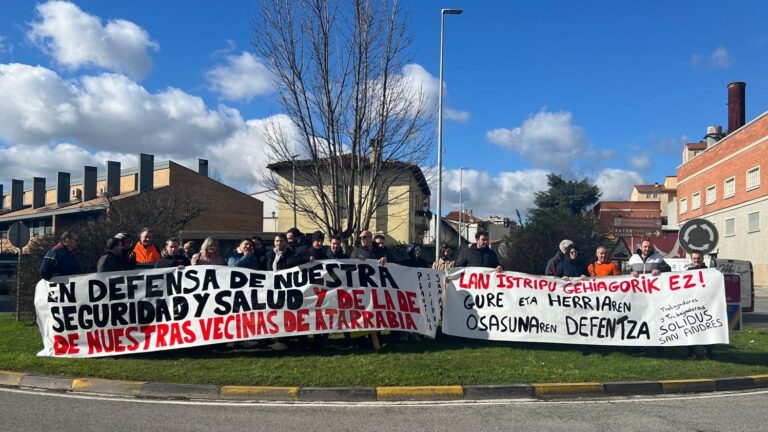 EN DEFENSA DE NUESTRA
SEGURIDAD Y SALUD Y DE LA DE
DE NUESTRAS VECINAS DE ATARRABIA
PLANTILLA
SOLIDUS
LAN ISTRIPU GEHIAGORIK EZ!
GURE ETA HERRIAREN
OSASUNAREN DEFENTZA
Trabajadoras y
Trabajadores
SOLIDUS
SAN ANDRES